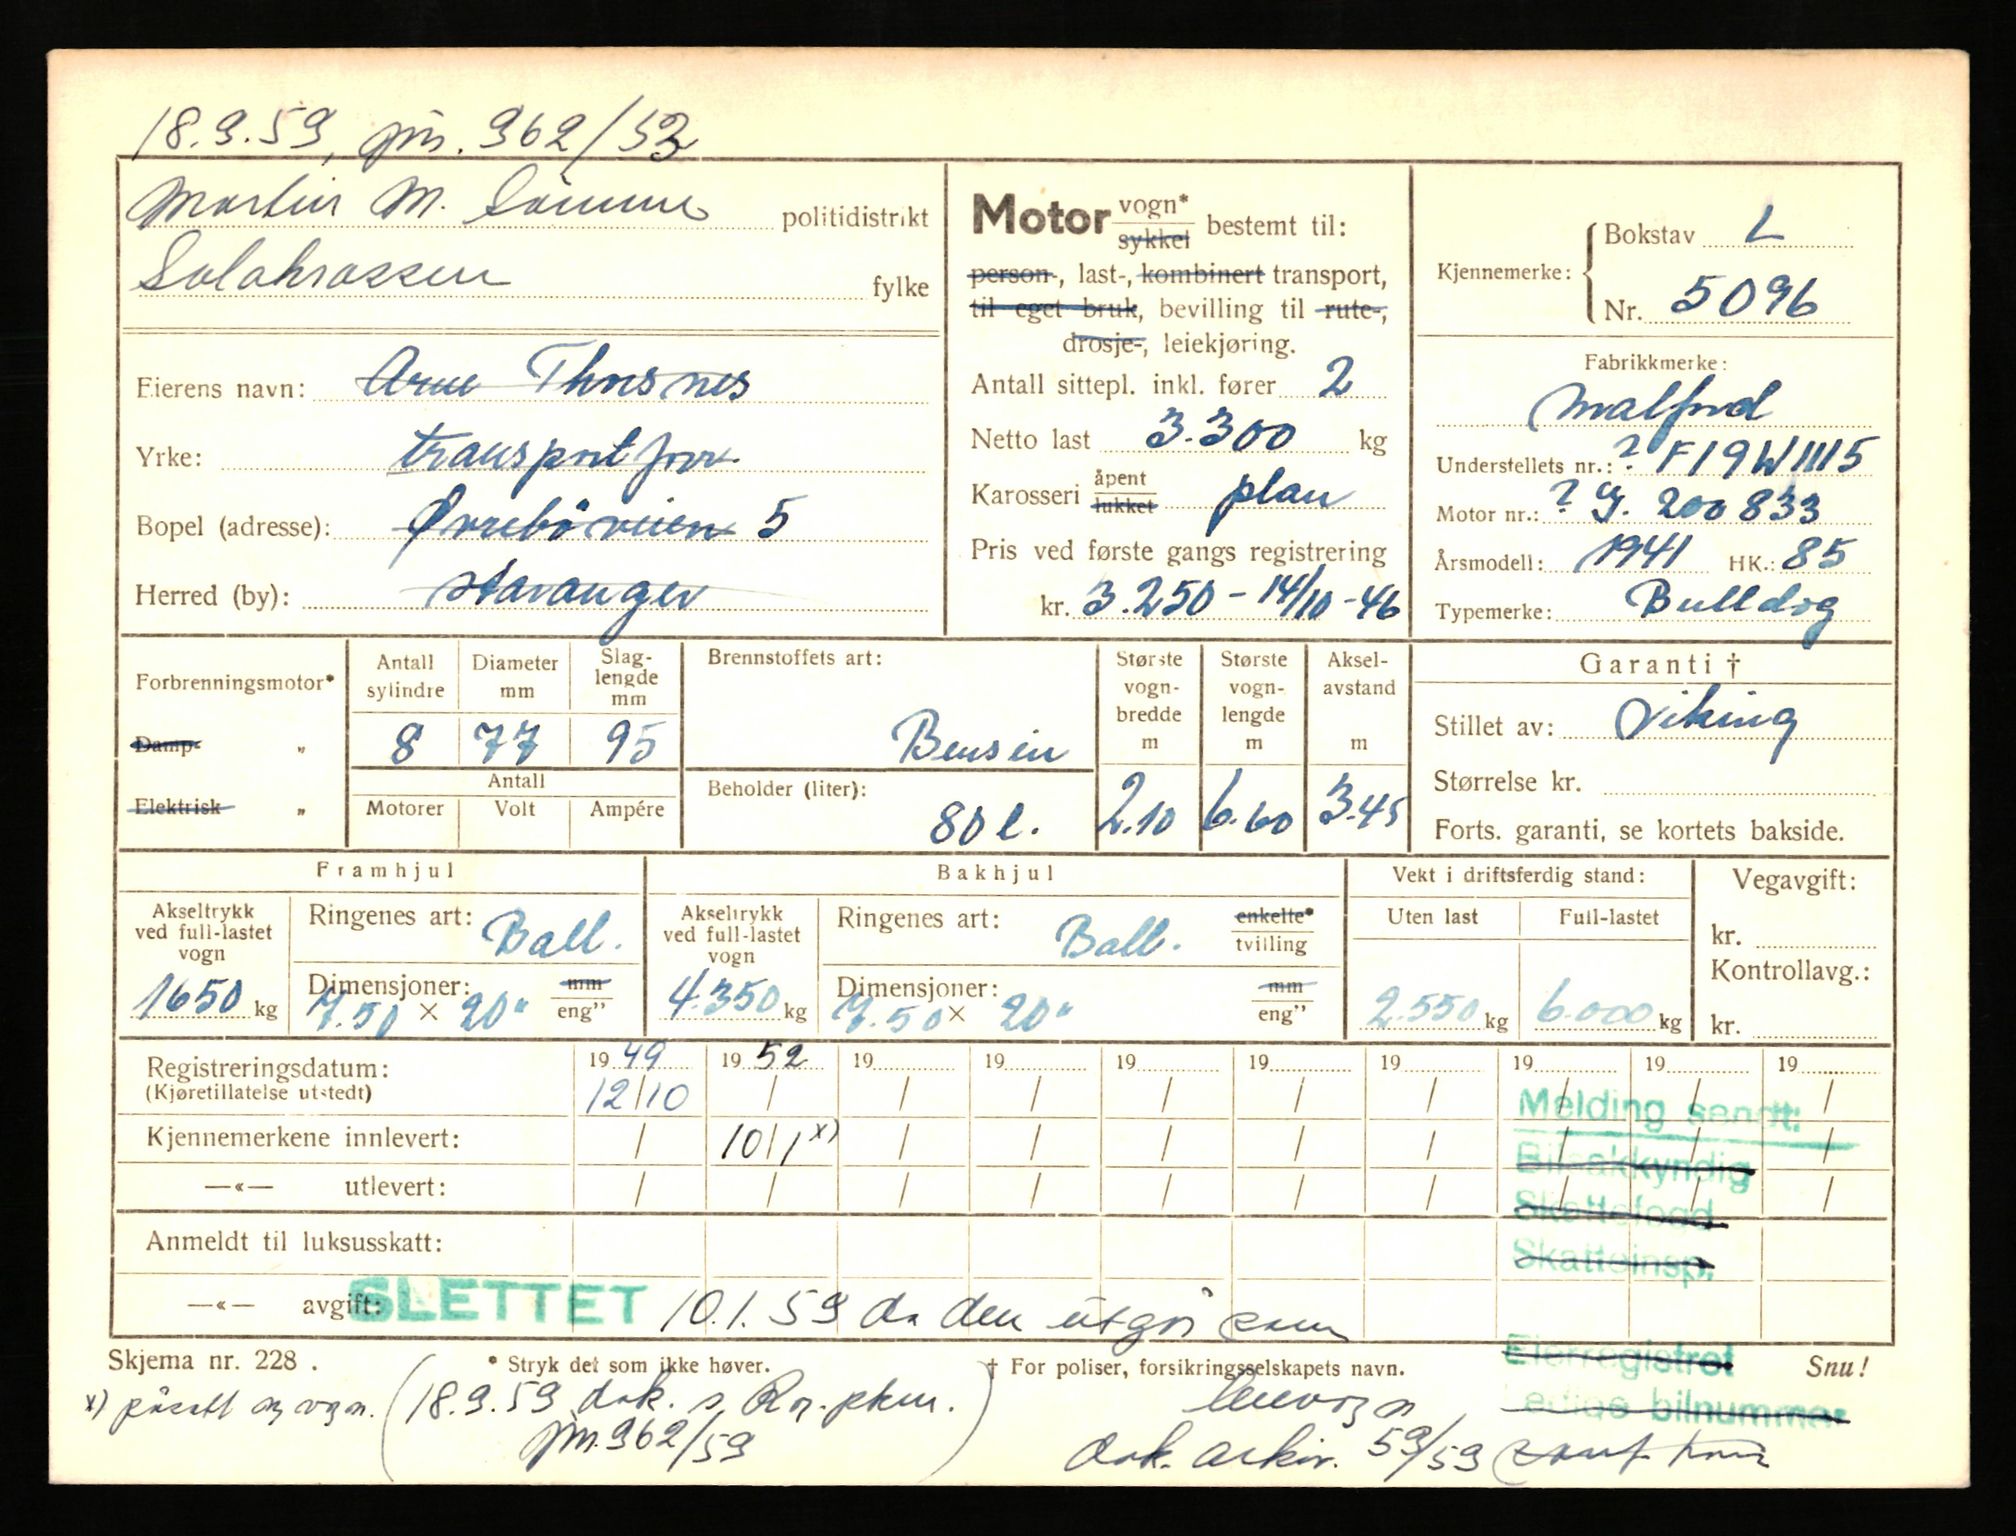 18.9.59, jnr. 962/59
Martin M. Sömme politidistrikt
Solakrossen fylke
Eierens navn: Arne Thosnes
Yrke: transportforr.
Bopel (adresse): Øvreböveien 5
Herred (by): Stavanger
Motor vogn* sykkel bestemt til:
person-, last-, kombinert transport,
til eget bruk, bevilling til rute-,
drosje-, leiekjøring.
Antall sittepl. inkl. fører 2
Netto last 3.300 kg
Karosseri åpent lukket plan
Pris ved første gangs registrering
kr. 3.250 - 14/10-46
Kjennemerke: Bokstav L
Nr. 5096
Fabrikkmerke:
Malford
Understellets nr.: ? F19W1115
Motor nr.: ? G. 200833
Årsmodell: 1941 HK.: 85
Typemerke: Bulldog
Forbrenningsmotor*
Damp- "
Elektrisk "
Antall sylindre
Diameter mm
Slag-lengde mm
8 77 95
Antall
Motorer Volt Ampére
Brennstoffets art:
Bensin
Beholder (liter):
80 l.
Største vogn-bredde m
Største vogn-lengde m
Aksel-avstand m
2.10 6.60 3.45
Garanti †
Stillet av: Viking
Størrelse kr.
Forts. garanti, se kortets bakside.
Framhjul
Akseltrykk ved full-lastet vogn
1650 kg
Ringenes art: Ball.
Dimensjoner: mm
7.50 × 20" eng"
Bakhjul
Akseltrykk ved full-lastet vogn
4.350 kg
Ringenes art: Ball. enkelte* tvilling
Dimensjoner: mm
7.50 × 20" eng"
Vekt i driftsferdig stand:
Uten last Full-lastet
2.550 kg 6.000 kg
Vegavgift:
kr.
Kontrollavg.:
kr.
Registreringsdatum: 19 49 19 52 19 19 19 19 19 19 19 19
(Kjøretillatelse utstedt) 12/10 / / / / / / / / /
Kjennemerkene innlevert: / 10/1 x) / / / / / / / /
—«— utlevert: / / / / / / / / / /
Anmeldt til luksusskatt:
—«— avgift: SLETTET 10.1.59 da den utgör som
Melding sendt:
Bilsakkyndig
Skattefogd
Skatteinsp.
Eierregistret
Ledige bilnummer
Skjema nr. 228 . * Stryk det som ikke høver. † For poliser, forsikringsselskapets navn. Snu!
x) påsatt ny vogn. (18.9.59 dok. s. Rog. pkm.
jnr. 962/59)
leievogn
dok. arkiv. 59/59